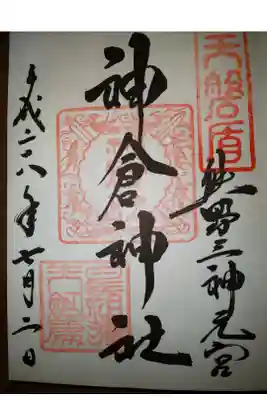 天磐盾
熊野三神元宮
神倉神社
平成二十八年七月二日